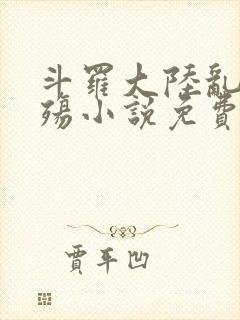 斗羅大陸亂
殤小說免費
賈平凹